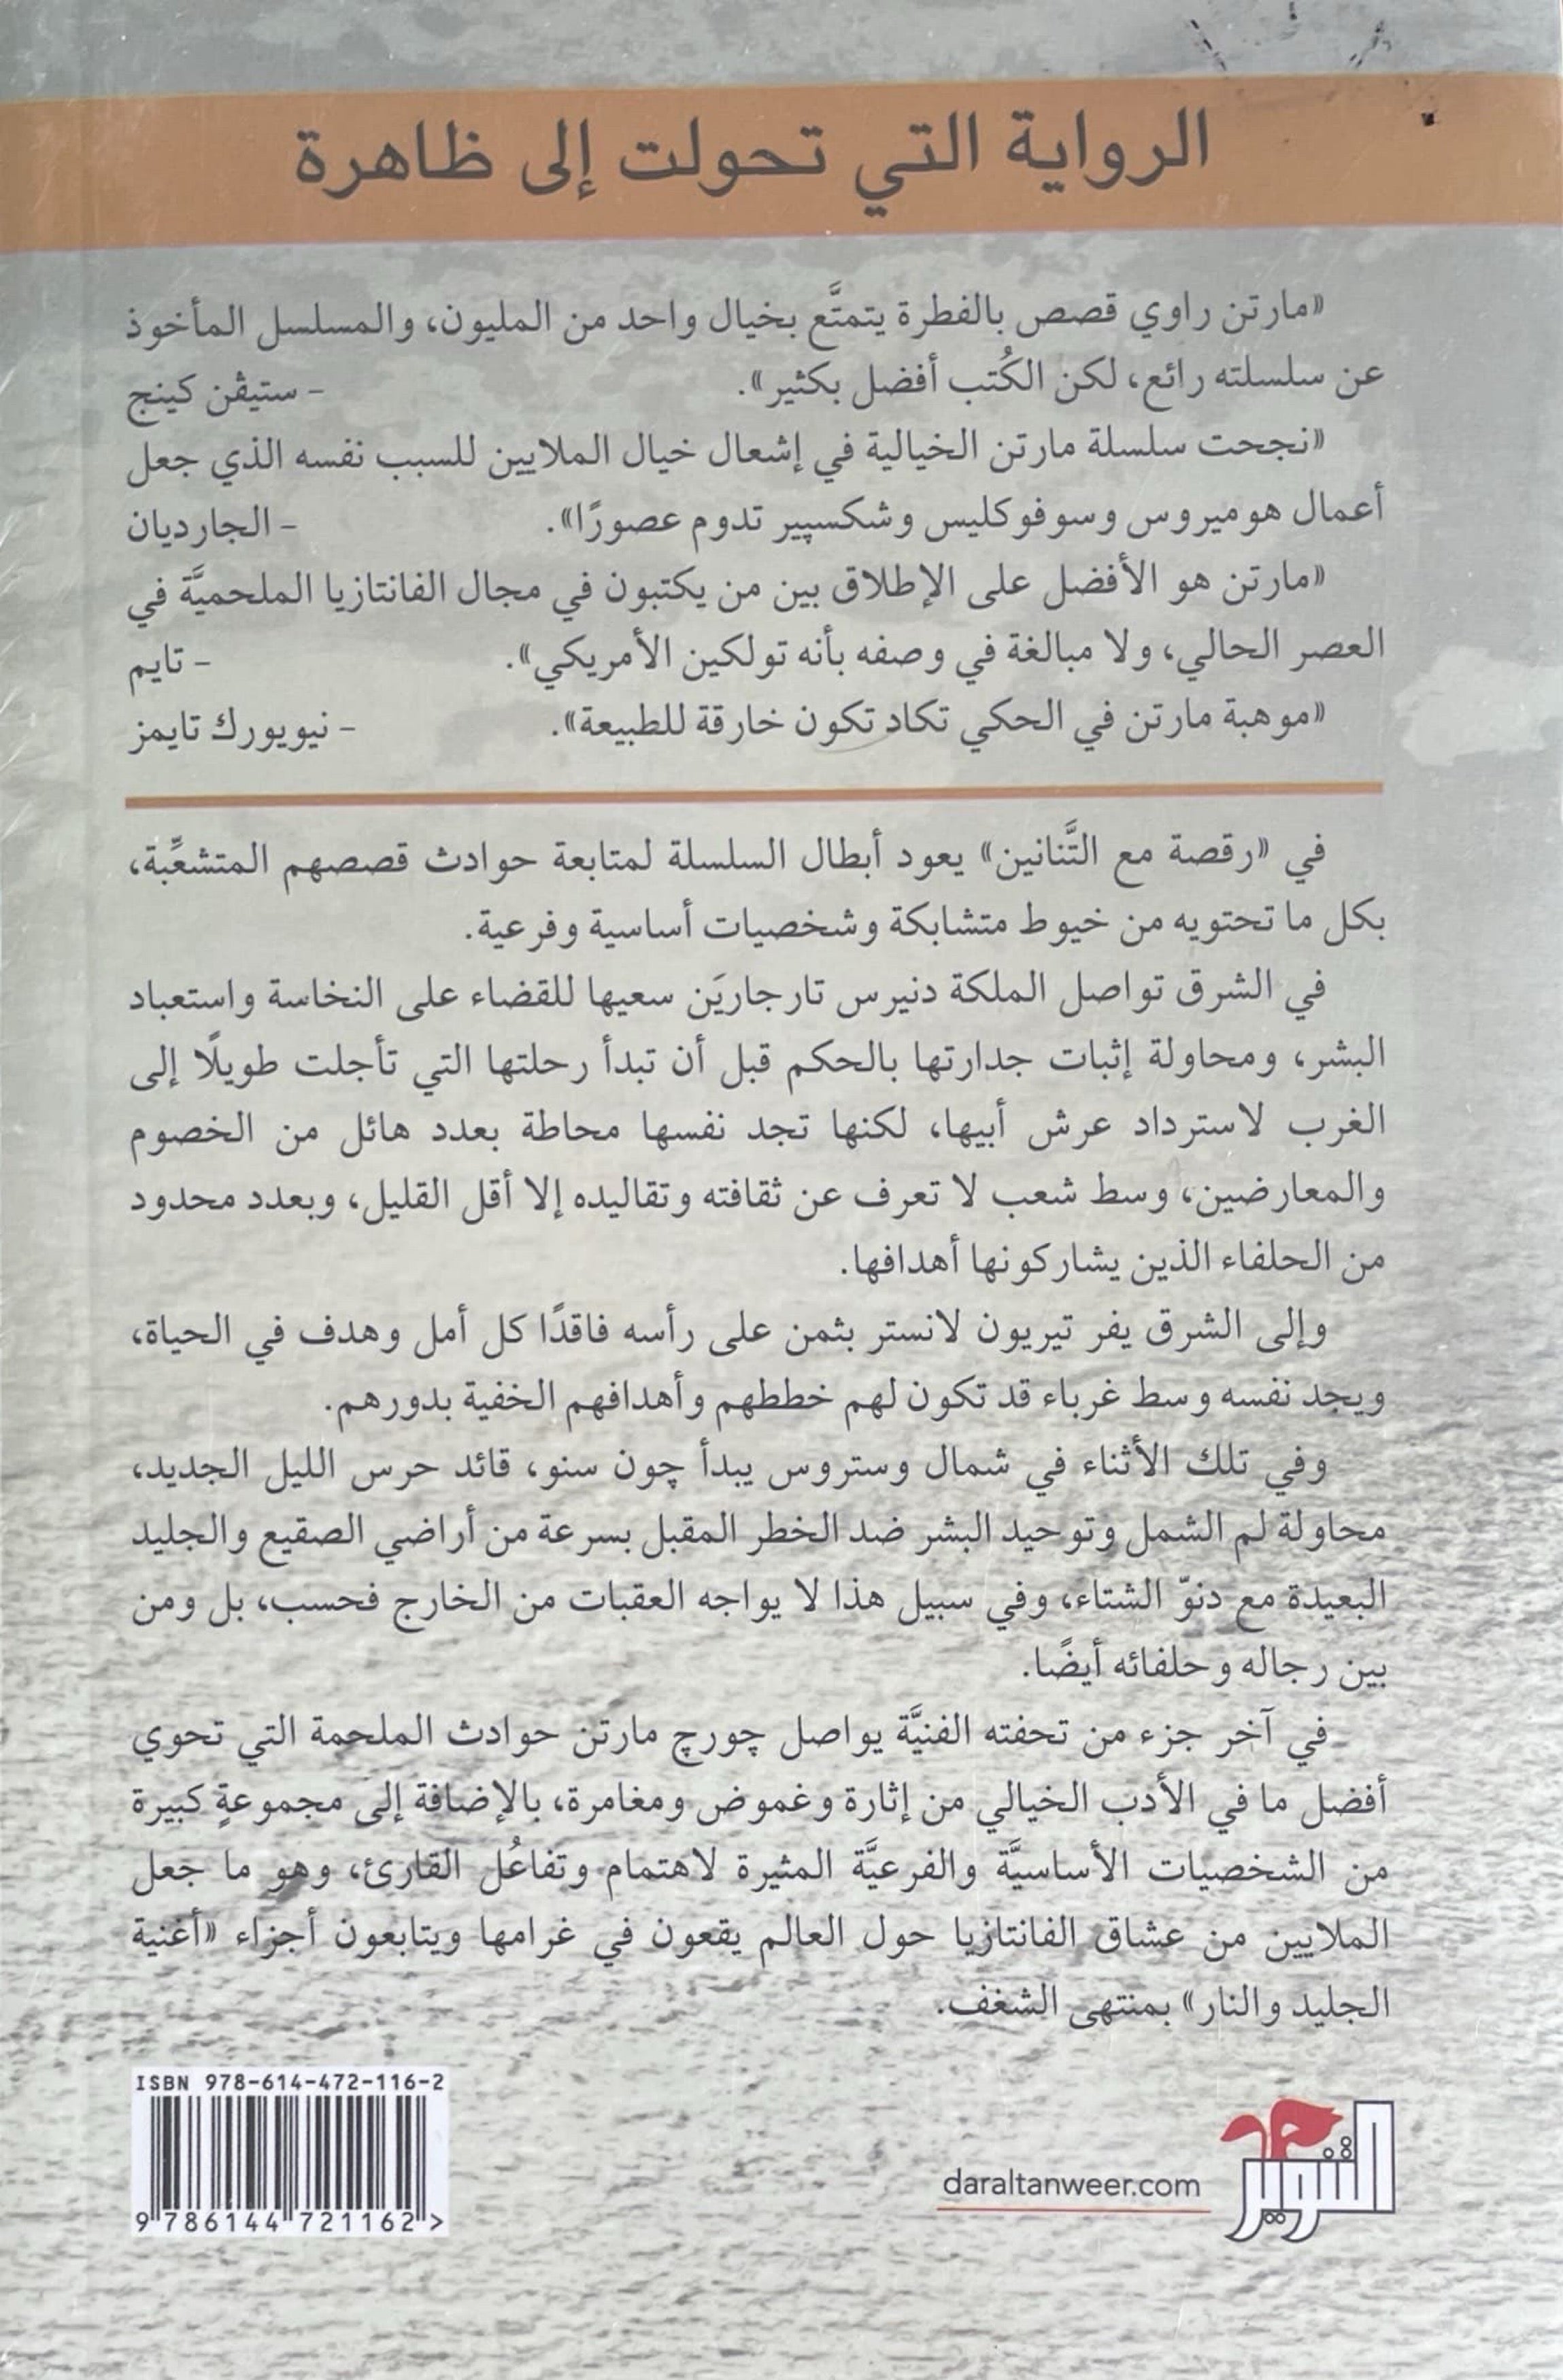 الرواية التي تحولت إلى ظاهرة
«مارتن راوي قصص بالفطرة يتمتَّع بخيال واحد من المليون، والمسلسل المأخوذ
عن سلسلته رائع، لكن الكُتب أفضل بكثير». - ستيڤن كينج
«نجحت سلسلة مارتن الخيالية في إشعال خيال الملايين للسبب نفسه الذي جعل
أعمال هوميروس وسوفوكليس وشكسپير تدوم عصورًا». - الجارديان
«مارتن هو الأفضل على الإطلاق بين من يكتبون في مجال الفانتازيا الملحميَّة في
العصر الحالي، ولا مبالغة في وصفه بأنه تولكين الأمريكي». - تايم
«موهبة مارتن في الحكي تكاد تكون خارقة للطبيعة». - نيويورك تايمز
في «رقصة مع التَّنانين» يعود أبطال السلسلة لمتابعة حوادث قصصهم المتشعِّبة،
بكل ما تحتويه من خيوط متشابكة وشخصيات أساسية وفرعية.
في الشرق تواصل الملكة دنيرس تارجاريَن سعيها للقضاء على النخاسة واستعباد
البشر، ومحاولة إثبات جدارتها بالحكم قبل أن تبدأ رحلتها التي تأجلت طويلًا إلى
الغرب لاسترداد عرش أبيها، لكنها تجد نفسها محاطة بعدد هائل من الخصوم
والمعارضين، وسط شعب لا تعرف عن ثقافته وتقاليده إلا أقل القليل، وبعدد محدود
من الحلفاء الذين يشاركونها أهدافها.
وإلى الشرق يفر تيريون لانستر بثمن على رأسه فاقدًا كل أمل وهدف في الحياة،
ويجد نفسه وسط غرباء قد تكون لهم خططهم وأهدافهم الخفية بدورهم.
وفي تلك الأثناء في شمال وستروس يبدأ چون سنو، قائد حرس الليل الجديد،
محاولة لم الشمل وتوحيد البشر ضد الخطر المقبل بسرعة من أراضي الصقيع والجليد
البعيدة مع دنوّ الشتاء، وفي سبيل هذا لا يواجه العقبات من الخارج فحسب، بل ومن
بين رجاله وحلفائه أيضًا.
في آخر جزء من تحفته الفنيَّة يواصل چورچ مارتن حوادث الملحمة التي تحوي
أفضل ما في الأدب الخيالي من إثارة وغموض ومغامرة، بالإضافة إلى مجموعةٍ كبيرة
من الشخصيات الأساسيَّة والفرعيَّة المثيرة لاهتمام وتفاعُل القارئ، وهو ما جعل
الملايين من عشاق الفانتازيا حول العالم يقعون في غرامها ويتابعون أجزاء «أغنية
الجليد والنار» بمنتهى الشغف.
ISBN 978-614-472-116-2
9 786144 721162 >
daraltanweer.com
التنوير